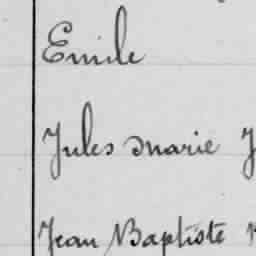 Emile
Jules Marie J
Jean Baptiste